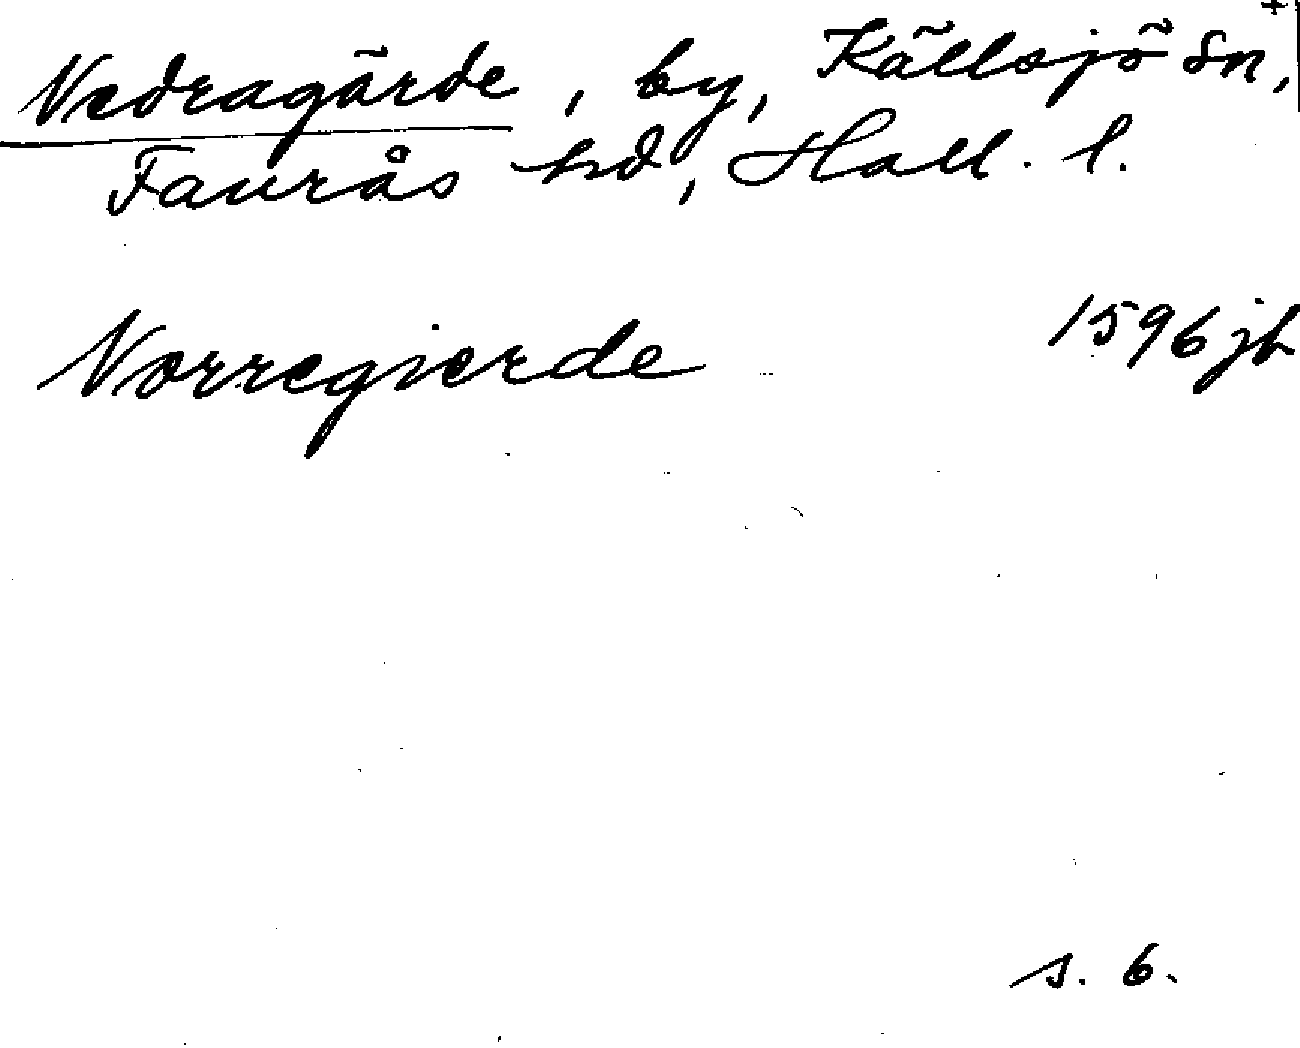 Nedragärde, by, Källsjö sn,
Faurås hd, Hall. l.
Norregierde 1596 jb
s. 6.